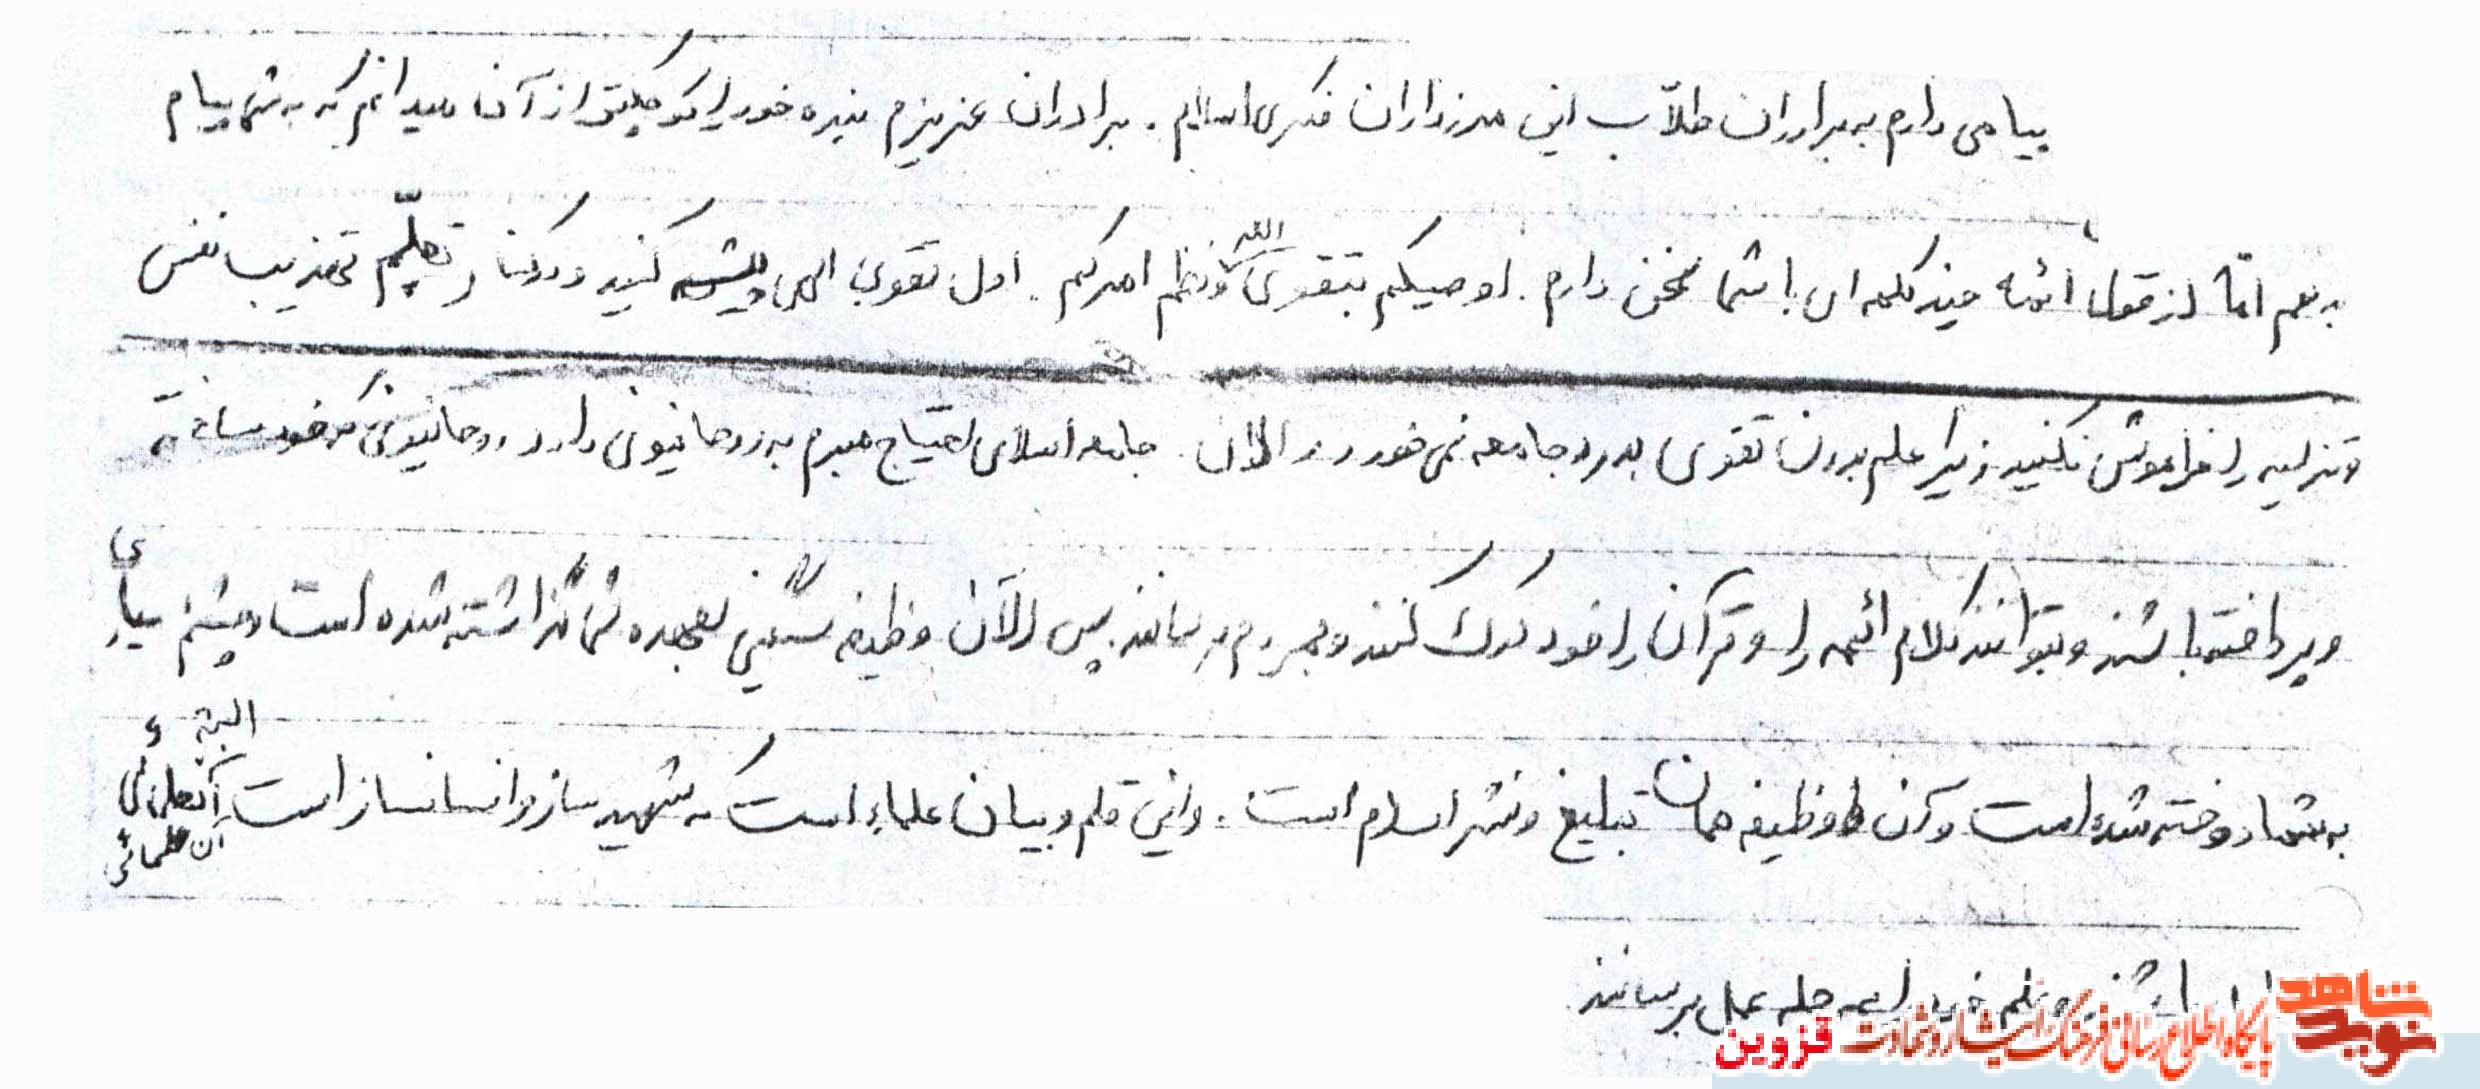 پیامی دارم به برادران طلّاب این مرزداران فکری اسلام. برادران عزیزم بنده خود را کوچکتر از آن میدانم که به شما پیام
بدهم امّا از قول ائمه چند کلمه ای با شما سخن دارم. اوصیکم بتقوی الله ونظم امرکم. اول تقوی الهی پیشه کنید و در کنار تعلّم تهذیب نفس
و تزکیه را فراموش نکنید زیرا علم بدون تقوی بدرد جامعه نمی خورد الان جامعه اسلامی احتیاج مبرم به روحانیونی دارد روحانیونی که خود ساخته
و پرداخته باشند و بتوانند کلام ائمه را و قرآن را خود درک کنند و بمردم برسانند. پس الآن وظیفه سنگینی بعهده شما گذاشته شده است و چشم
به شما دوخته شده است و آن وظیفه همان تبلیغ و نشر اسلام است. و این قلم و بیان علماء است که شهید ساز و انسانساز است البته آن علمائی
باشند و علم خود را به مرحله عمل برسانند.
نوید شاهد
پایگاه اطلاع رسانی فرهنگ ایثار و شهادت قزوین